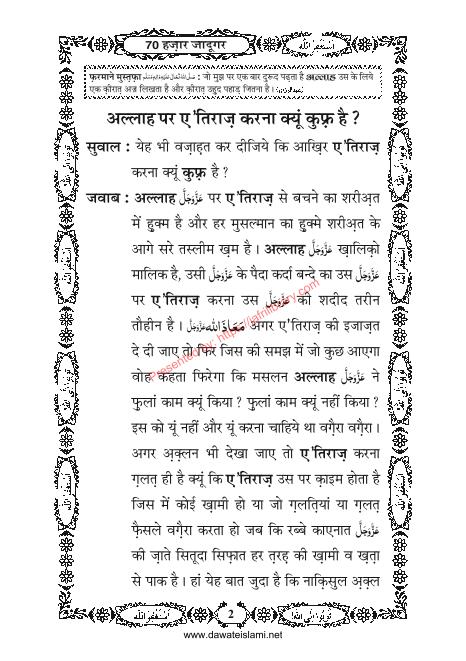 70 हज़ार जादूगर
اَسْتَغْفِرُ اللّٰه
फ़रमाने मुस्तफ़ा صَلَّى اللّٰهُ تَعَالٰى عَلَيْهِ وَاٰلِهٖ وَسَلَّم : जो मुझ पर एक बार दुरूद पढ़ता है अल्लाह उस के लिये
एक क़ीरात अज्र लिखता है और क़ीरात उहुद पहाड़ जितना है।
अल्लाह पर ए'तिराज़ करना क्यूं कुफ़्र है ?
सुवाल : येह भी वज़ाहत कर दीजिये कि आख़िर ए'तिराज़
करना क्यूं कुफ़्र है ?
जवाब : अल्लाह عَزَّوَجَلَّ पर ए'तिराज़ से बचने का शरीअ़त
में हुक्म है और हर मुसल्मान का हुक्मे शरीअ़त के
आगे सरे तस्लीम ख़म है। अल्लाह عَزَّوَجَلَّ ख़ालिक़ो
मालिक है, उसी عَزَّوَجَلَّ के पैदा कर्दा बन्दे का उस عَزَّوَجَلَّ
पर ए'तिराज़ करना उस عَزَّوَجَلَّ की शदीद तरीन
तौहीन है। مَعَاذَاللّٰه عَزَّوَجَلَّ अगर ए'तिराज़ की इजाज़त
दे दी जाए तो फिर जिस की समझ में जो कुछ आएगा
वोह कहता फिरेगा कि मसलन अल्लाह عَزَّوَجَلَّ ने
फुलां काम क्यूं किया ? फुलां काम क्यूं नहीं किया ?
इस को यूं नहीं और यूं करना चाहिये था वग़ैरा वग़ैरा।
अगर अ़क़्लन भी देखा जाए तो ए'तिराज़ करना
ग़लत़ ही है क्यूं कि ए'तिराज़ उस पर क़ाइम होता है
जिस में कोई ख़ामी हो या जो ग़लतियां या ग़लत
फ़ैसले वग़ैरा करता हो जब कि रब्बे काएनात عَزَّوَجَلَّ
की ज़ाते सितूदा सिफ़ात हर त़रह की ख़ामी व ख़त़ा
से पाक है। हां येह बात जुदा है कि नाक़िसुल अ़क़्ल
Presented by: https://jafrilibrary.com
اَسْتَغْفِرُ اللّٰه
2
تُوبُوْا اِلَى اللّٰه
www.dawateislami.net